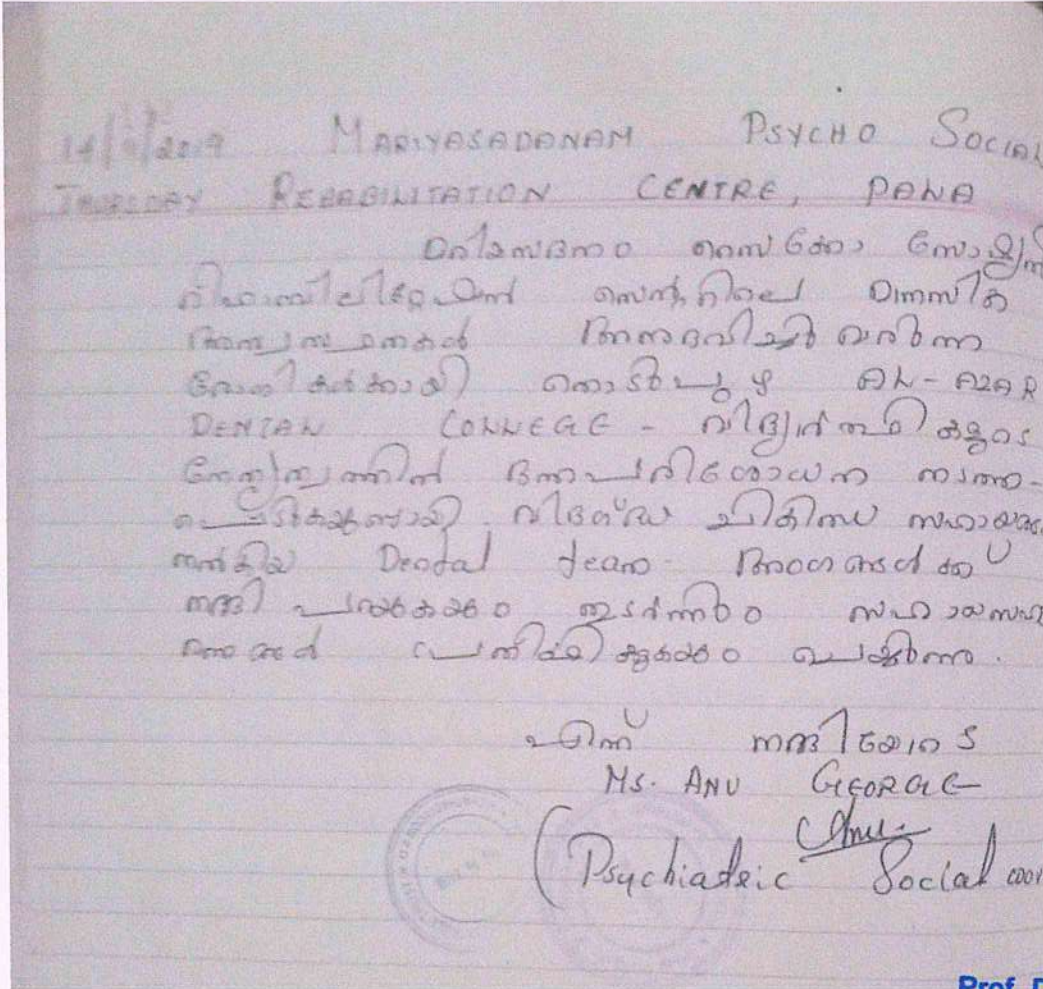 14/ /2019 MARIYASADANAM PSYCHO SOCIAL
THURSDAY REHABILITATION CENTRE, PALA
മരിയസദനം സൈക്കോ സോഷ്യൽ
റിഹാബിലിറ്റേഷൻ സെന്ററിലെ മാനസിക
അസ്വസ്ഥതകൾ അനുഭവിച്ചു വരുന്ന
രോഗികൾക്കായി തൊടുപുഴ AL-AZAR
DENTAL COLLEGE - വിദ്യാർത്ഥികളുടെ
നേതൃത്വത്തിൽ ദന്തപരിശോധന നടത്ത-
പ്പെടുകയുണ്ടായി. വിദഗ്ദ്ധ ചികിത്സ സഹായങ്ങൾ
നൽകിയ Dental team അംഗങ്ങൾക്ക്
നന്ദി പറയുകയും തുടർന്നും സഹായസഹ
രണങ്ങൾ പ്രതീക്ഷിക്കുകയും ചെയ്യുന്നു.
എന്ന് നന്ദിയോടെ
MS. ANU GEORGE
Anu
(Psychiatric Social
Prof. D